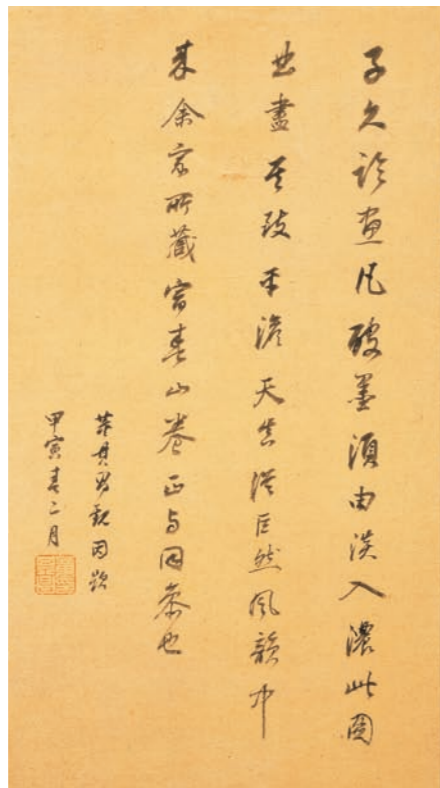 子久論畫凡破墨須由淡入濃此圖
曲盡其致平澹天真從巨然風韻中
來余家所藏富春山卷正与同參也
董其昌觀因題
甲寅春二月